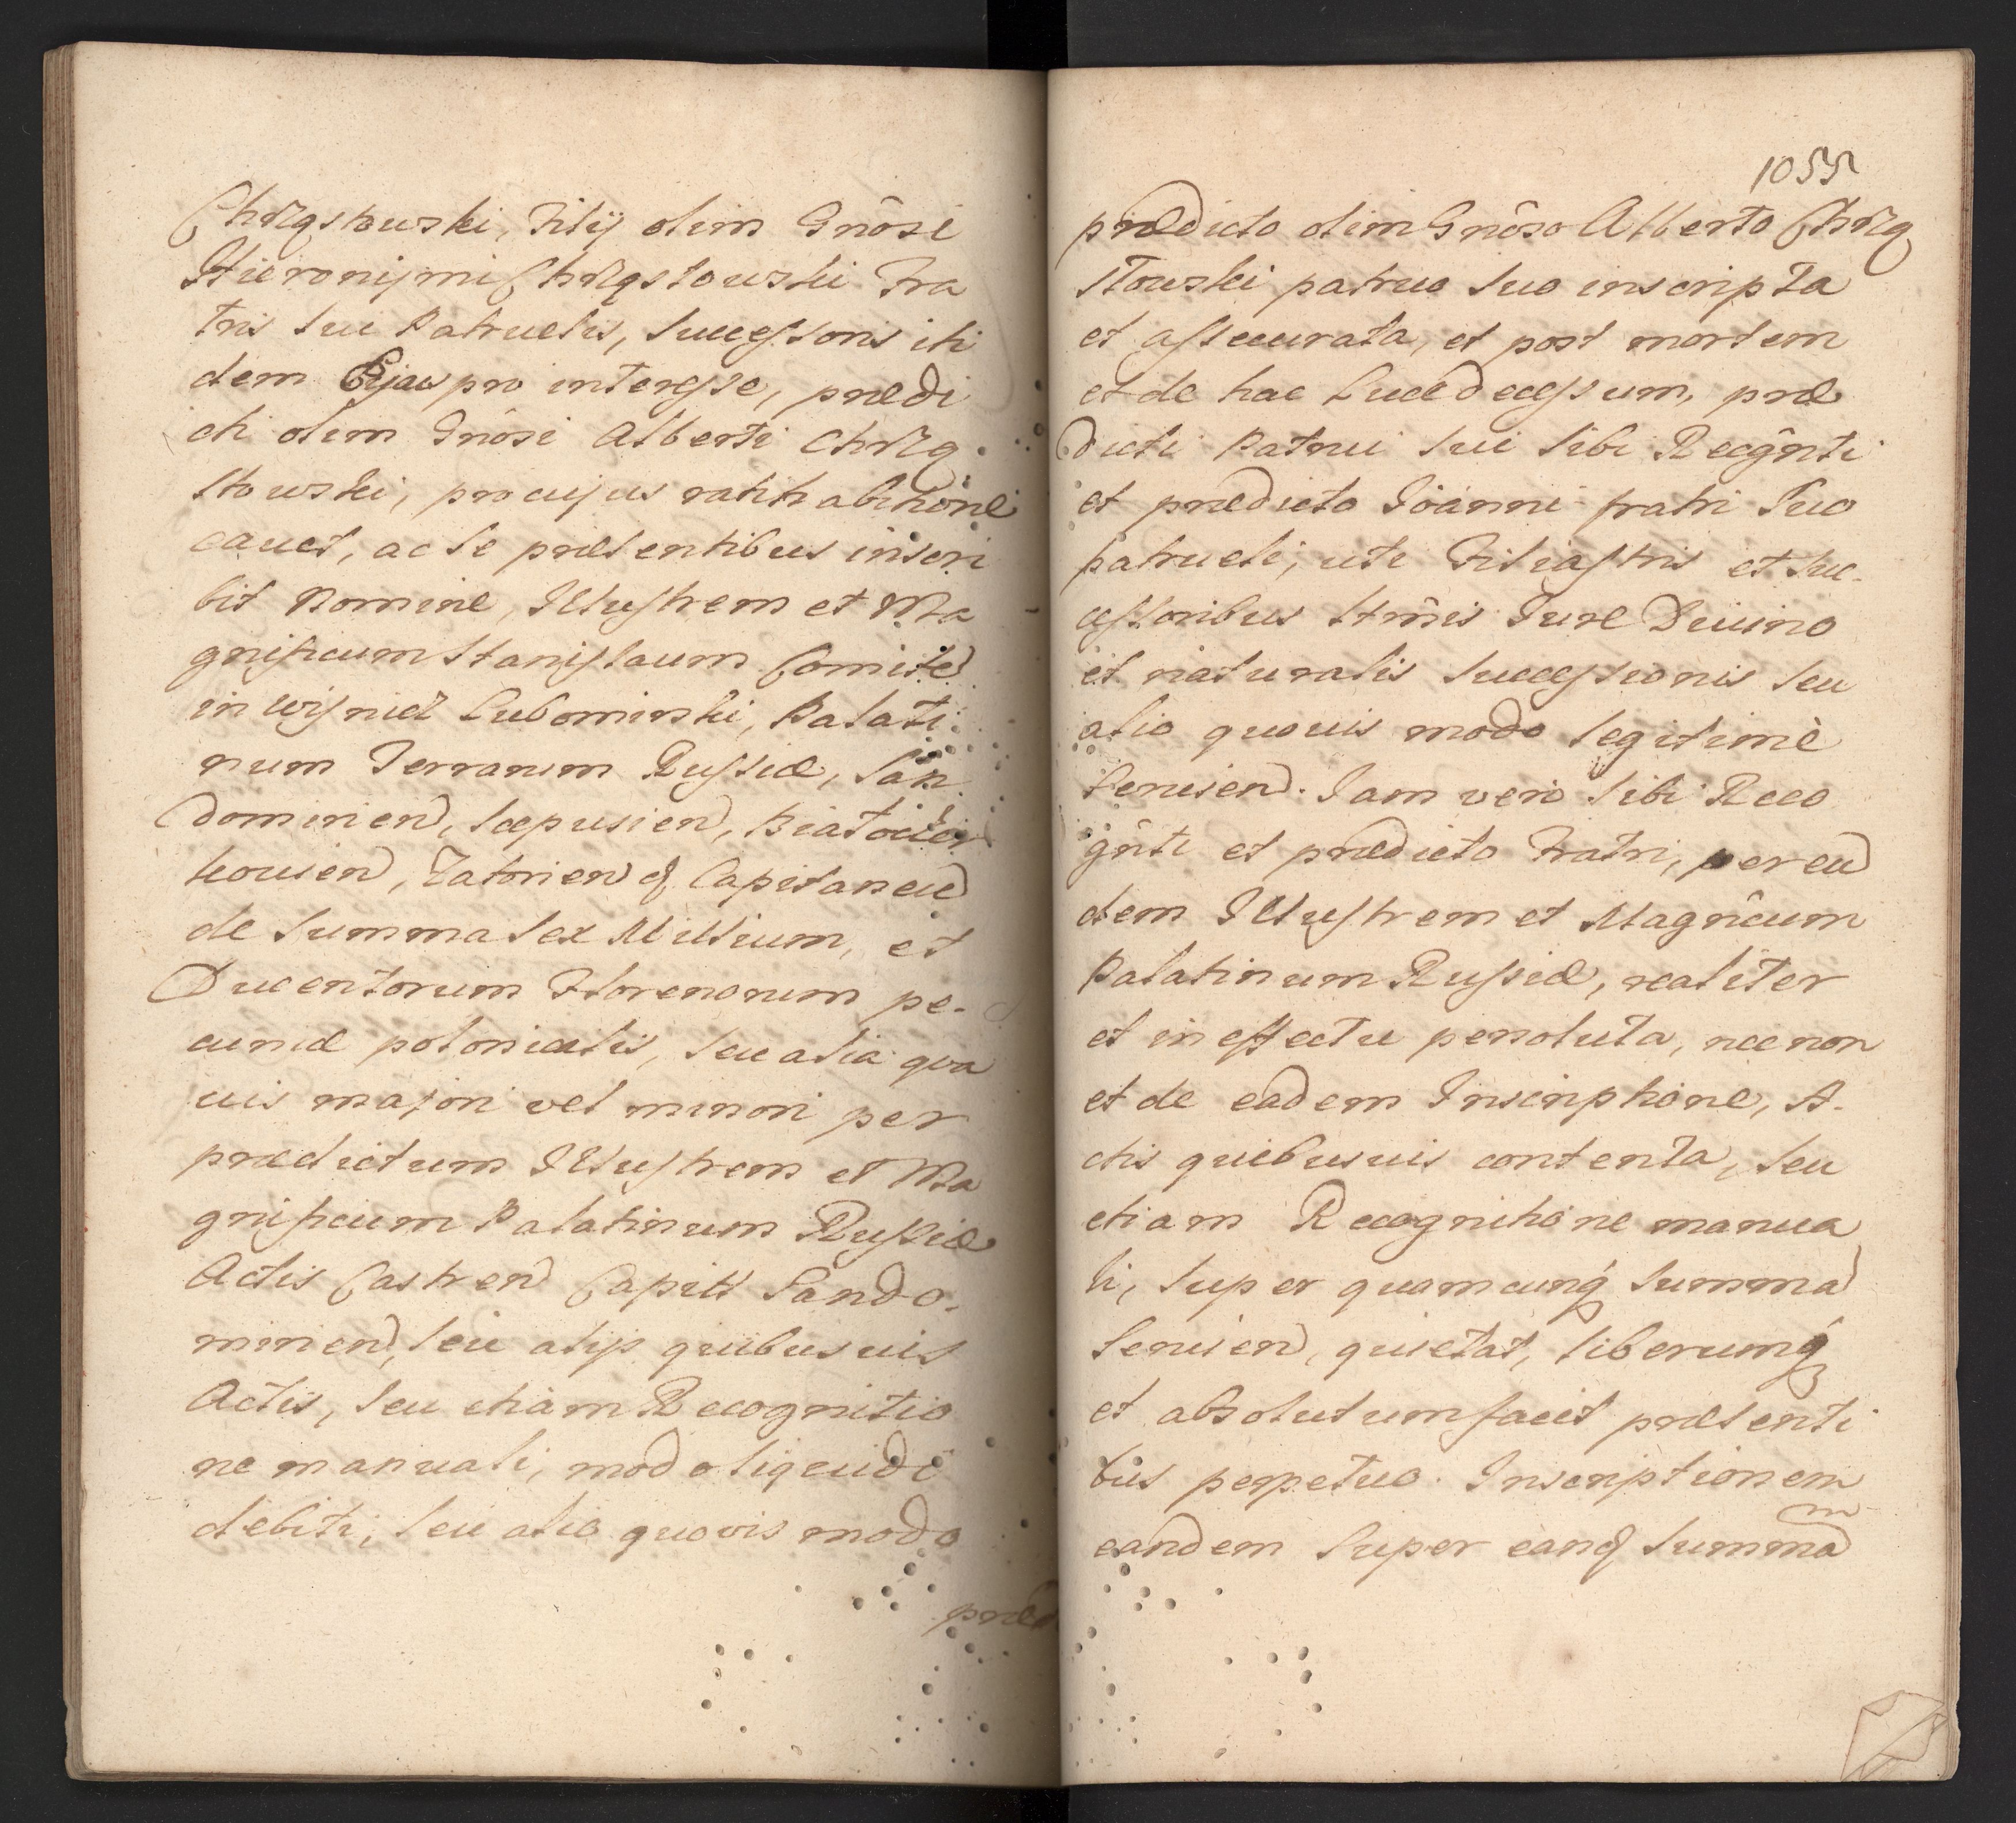 Chrząstowski, Filij olim Gnôsi
Hieronijmi Chrząstowski Fra
tris sui Patruelis, successoris iti
dem Ejus pro interesse, prædi
cti olim Gnôsi Alberti Chrzą
stowski, pro cujus ratihabitione
cauet, ac se præsentibus inscri
bit nomine, Illustrem et Ma
gnificum Stanislaum Comite
in Wisnicz Lubomirski, Palati
num Terrarum Russiæ, San
domirien, Scepusien, Biatocer
kouien, Zatorien & Capitaneu
de Summa Sex Millium, et
Ducentorum Florenorum pe-
cuniæ polonicalis, seu alia qva
uis majori vel minori per
prædictum Illustrem et Ma
gnificum Palatinum Russiæ
Actis Castren Capitt Sando-
mirien, seu alijs quibusuis
Actis, seu etiam Recognitio
ne manuali, modo liquidi
debiti, seu alio quovis modo
præd
1055
prædicto olim Gnôso Alberto Chrzą
stowski patruo suo inscripta
et assecurata, et post mortem
et de hac Luce decessum, præ
dicti Patrui sui sibi Recgñti
et prædicto Joanni fratri suo
patrueli, uti Filiastris et suc-
cessoribus Ltîmis Jure Diuino
et naturalis successionis seu
alio quouis modo legitimè
seruien. Jam vero sibi Reco
gñti et prædicto Fratri, per eu
dem Illustrem et Magnîcum
Palatinum Russiæ, realiter
et in effectu persoluta, nec non
et de eadem Inscriptione, A-
ctis quibusuis contenta, seu
etiam Recognitione manua
li, super quamcunq́ summa
seruien, quietat, liberumq́
et absolutum facit præsenti
bus perpetuo. Inscriptionem
eandem super eand summam